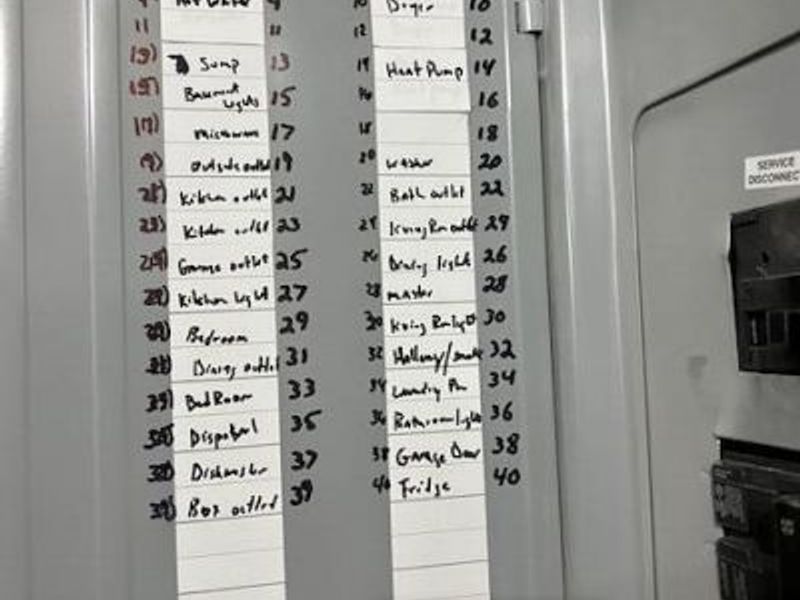 9 9 10 Dryer 10
11 11 12 12
13) Sump 13 14 Heat Pump 14
15) Basement Lights 15 16 16
17) microwave 17 18 18
19) outside outlet 19 20 washer 20
21) Kitchen outlet 21 22 Bath outlet 22
23) Kitchen outlet 23 24 living Rm outlet 24
25) Garage outlet 25 26 Dining light 26
27) Kitchen Light 27 28 master 28
29) Bedroom 29 30 living Rm 30
31) Dining outlet 31 32 Hallway/smoke 32
33) Bed Room 33 34 Laundry Rm 34
35) Disposal 35 36 Bathroom lights 36
37) Dishwasher 37 38 Garage Door 38
39) outlet 39 40 Fridge 40
SERVICE
DISCONNECT